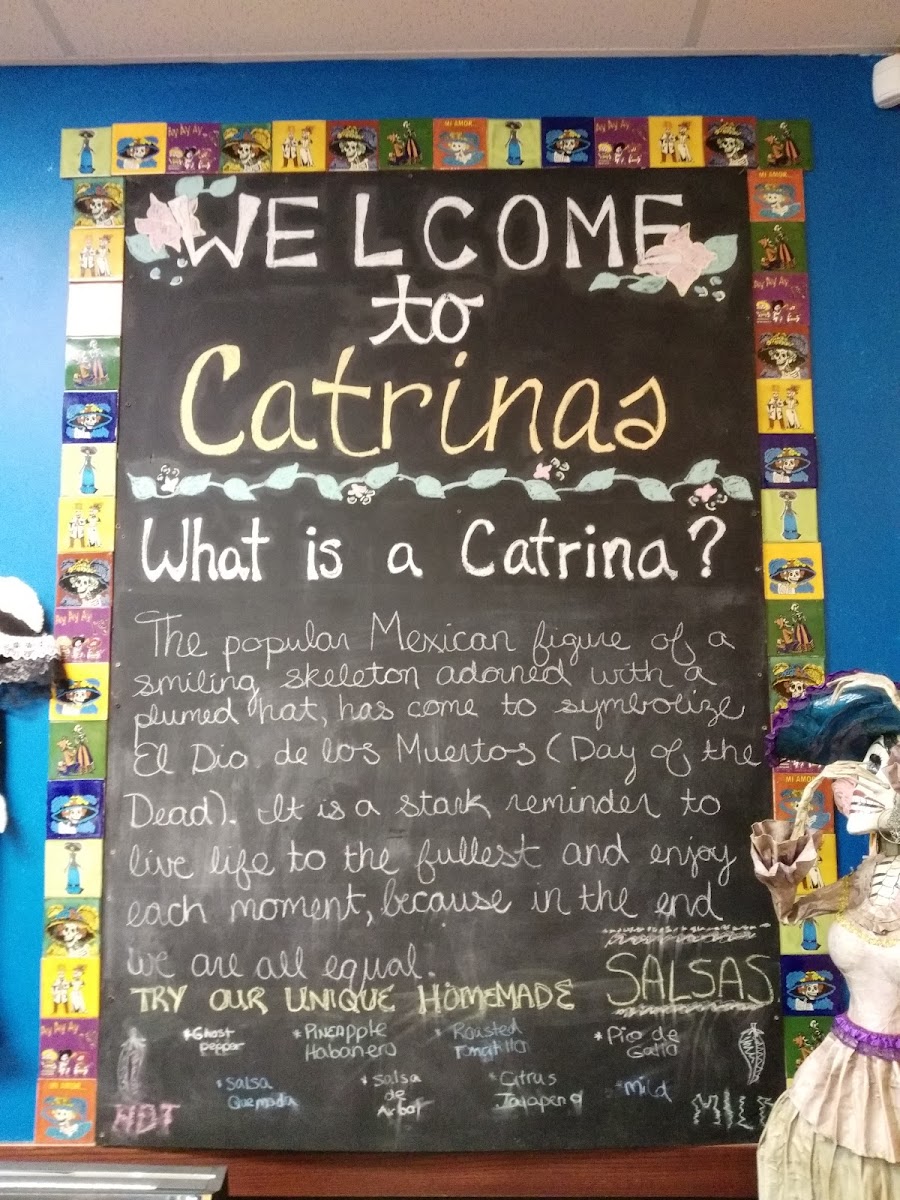 WELCOME
to
Catrinas
What is a Catrina?
The popular Mexican figure of a
smiling skeleton adorned with a
plumed hat, has come to symbolize
El Dia de los Muertos (Day of the
Dead). It is a stark reminder to
live life to the fullest and enjoy
each moment, because in the end
we are all equal.
TRY OUR UNIQUE HOMEMADE SALSAS
*Ghost pepper
*Pineapple Habanero
*Roasted Tomatillo
*Pico de Gallo
*Salsa Quemada
*Salsa de Arbol
*Citrus Jalapeno
*Mild
HOT
MILD
MI AMOR...